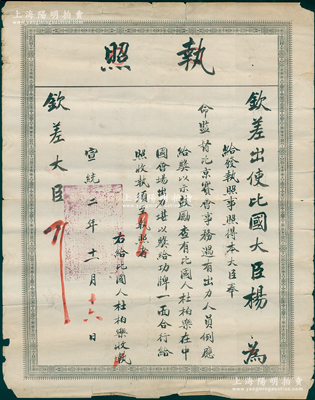 執照
欽差出使比國大臣楊 為
給發執照事照得本大臣奉
命監督比京賽會事務遇有出力人員例應
給獎以示鼓勵查有比國人杜柏樂在中
國會場出力堪以獎給功牌一面合行給
照收執須至執照者
右給比國人杜柏樂收執
宣統二年十一月十六日
欽差大臣
上海陽明拍賣